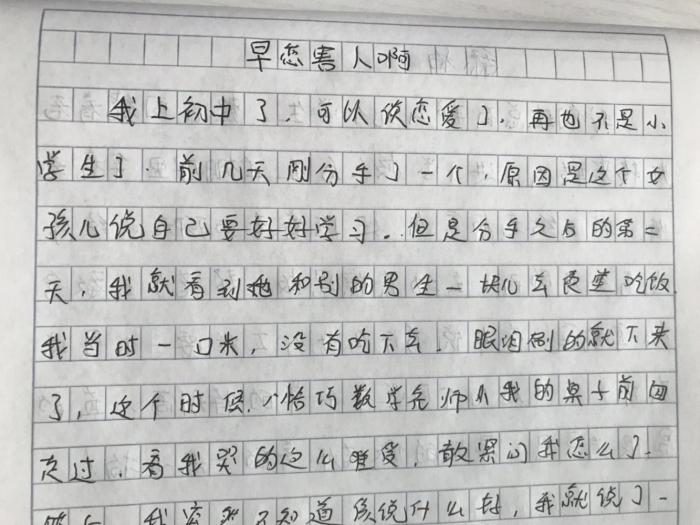 早恋害人啊
我上初中了，可以谈恋爱了，再也不是小
学生了。前几天刚分手了一个，原因是这个女
孩儿说自己要好好学习。但是分手之后的第二
天，我就看到她和别的男生一块儿去食堂吃饭
我当时一口米，没有吃下去，眼泪刷的就下来
了，这个时候，恰巧数学老师从我的桌子前面
走过，看我哭的这么难受，就问我怎么了。
我 不知道该说什么好，我就说了一